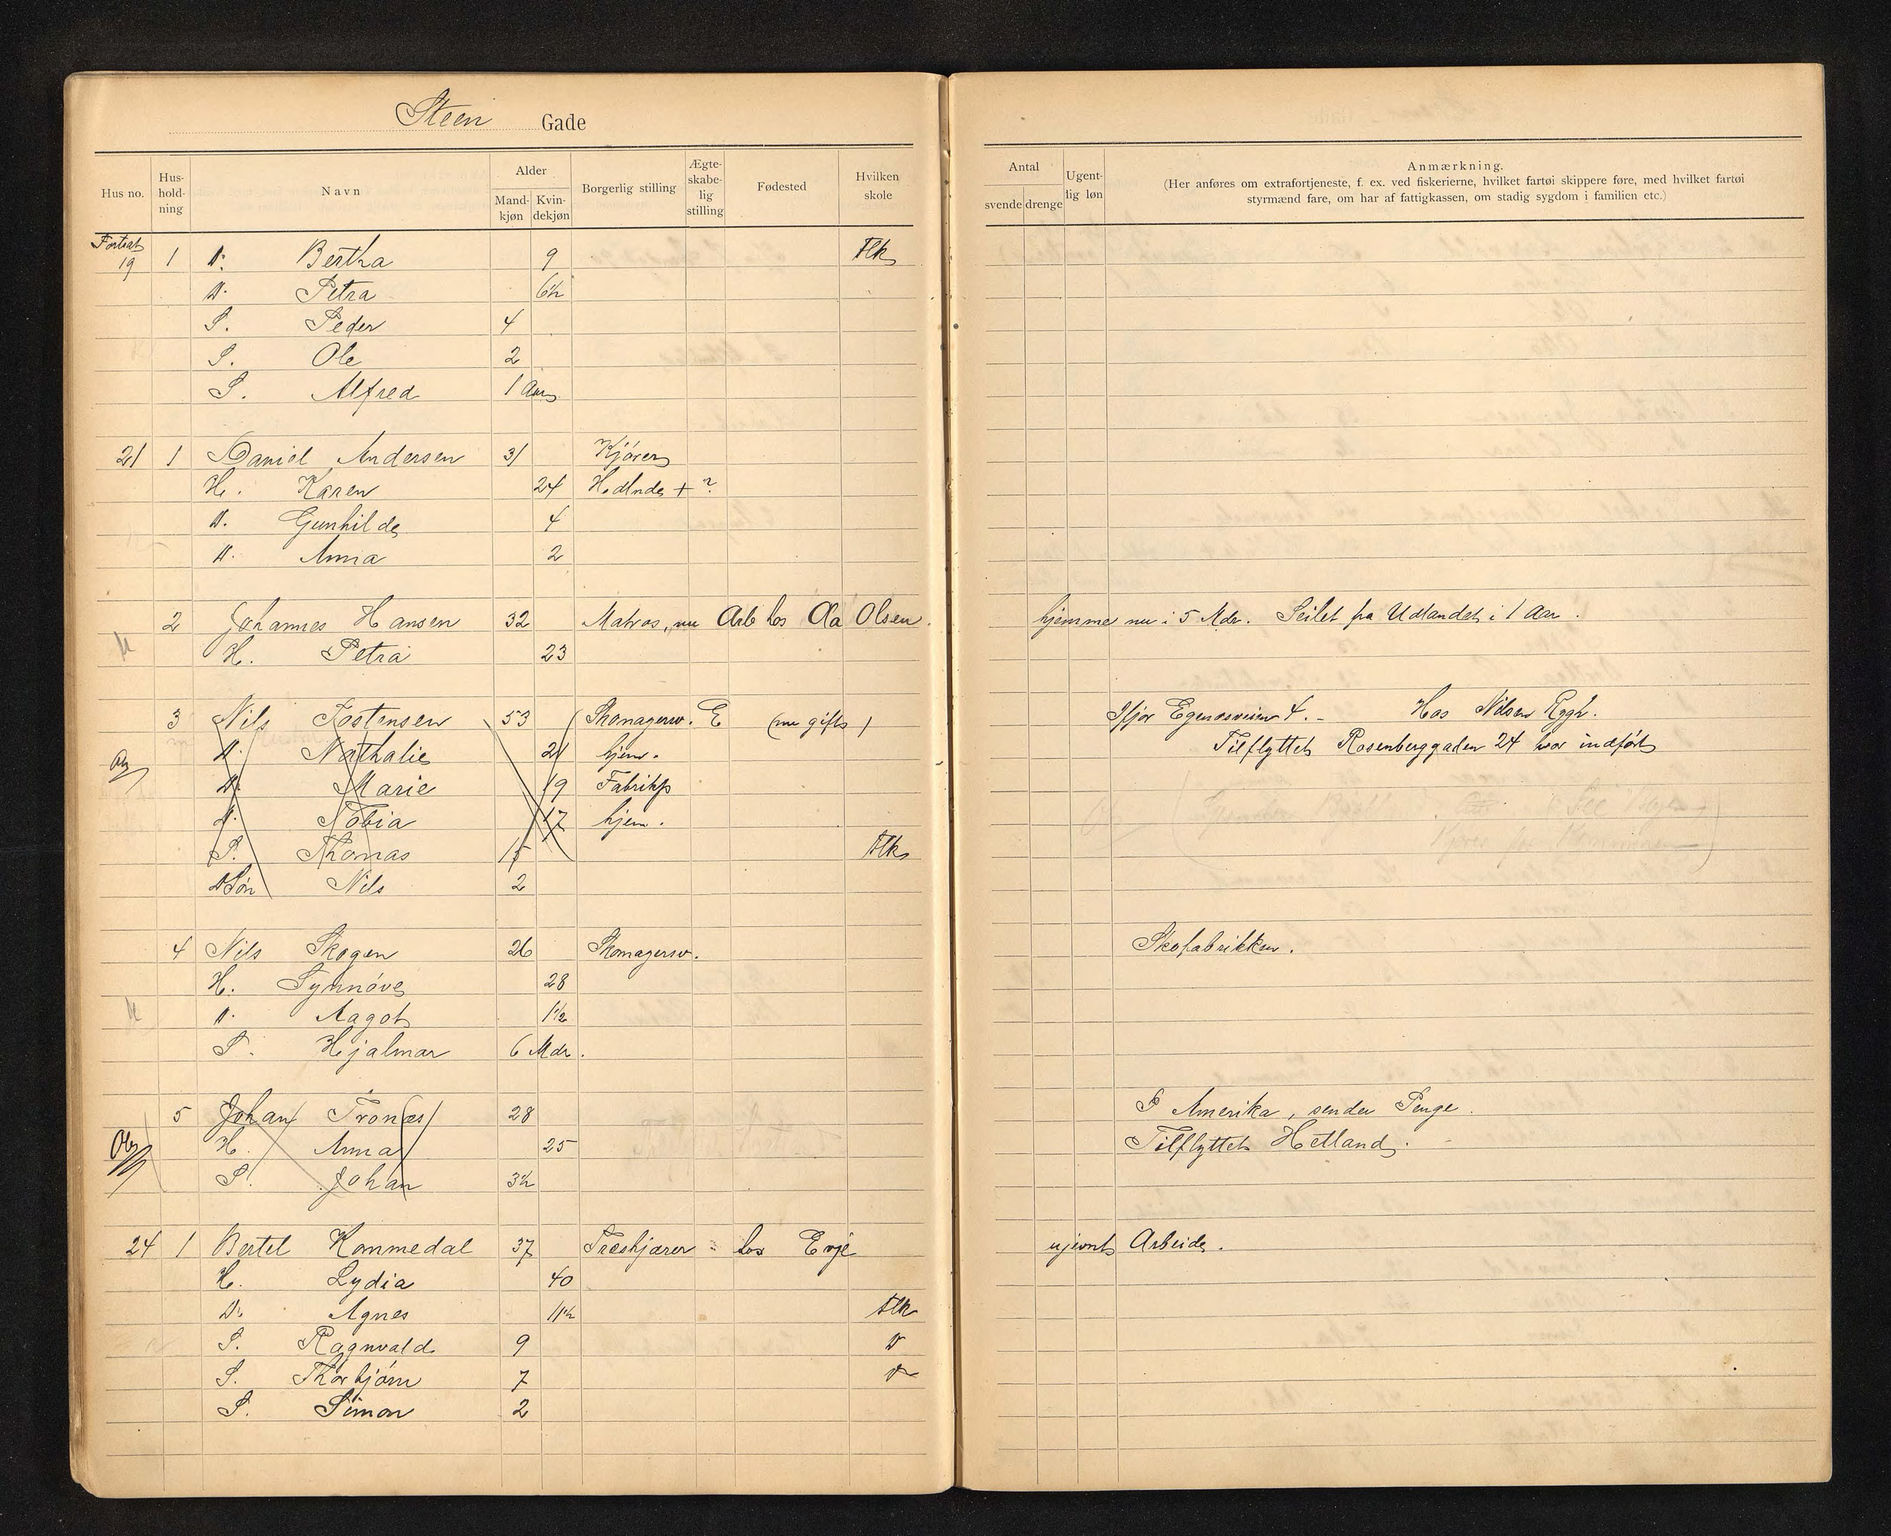 Steen Gade
Hus no. Hus-hold-ning Navn Alder Mand-kjøn Kvin-dekjøn Borgerlig stilling Ægte-skabe-lig stilling Fødested Hvilken skole
Antal svende drenge Ugent-lig løn Anmærkning.
(Her anføres om extrafortjeneste, f. ex. ved fiskerierne, hvilket fartøi skippere føre, med hvilket fartøi
styrmænd fare, om har af fattigkassen, om stadig sygdom i familien etc.)
Fortsat
19 1 D. Bertha 9 Flk
D. Petra 6½
S. Peder 4
S. Ole 2
S. Alfred 1 Aar
21 1 Daniel Andersen 31 Kjører
H. Karen 24 + ?
D. Gunhilde 4
D. Anna 2
2 Johannes Hansen 32 Matros, nu Arb hos Aa Olsen. hjemme nu i 5 Mdr. Seilet fra Udlandet i 1 Aar.
H. Petra 23
3 Nils Jostensen 53 Skomagersv. E (nu gift) Ifjor Egenæsveien 4. - Hos Nilsen Kggt.
D. Nathalie 21 hjem. Tilflyttet Rosenberggaden 24 hvor indført
D. Marie 19 Fabrikp
D. Tobia 17 hjem.
S. Thomas 15 Flk
Søn Nils 2
4 Nils Skogen 26 Skomagersv. Skofabrikken.
H. Synnøve 28
D. Aagot 1½
S. Hjalmar 6 Mdr.
5 Johan Tronæs 28 I Amerika, sender Penge.
H. Anna 25 Tilflyttet Hetland.
S. Johan 3½
24 1 Bertel Kommedal 37 Træskjærer hos Evje ujevnt Arbeide.
H. Lydia 40
D. Agnes 11½ Flk
S. Ragnvald 9 D
S. Thorbjørn 7 D
S. Simon 2